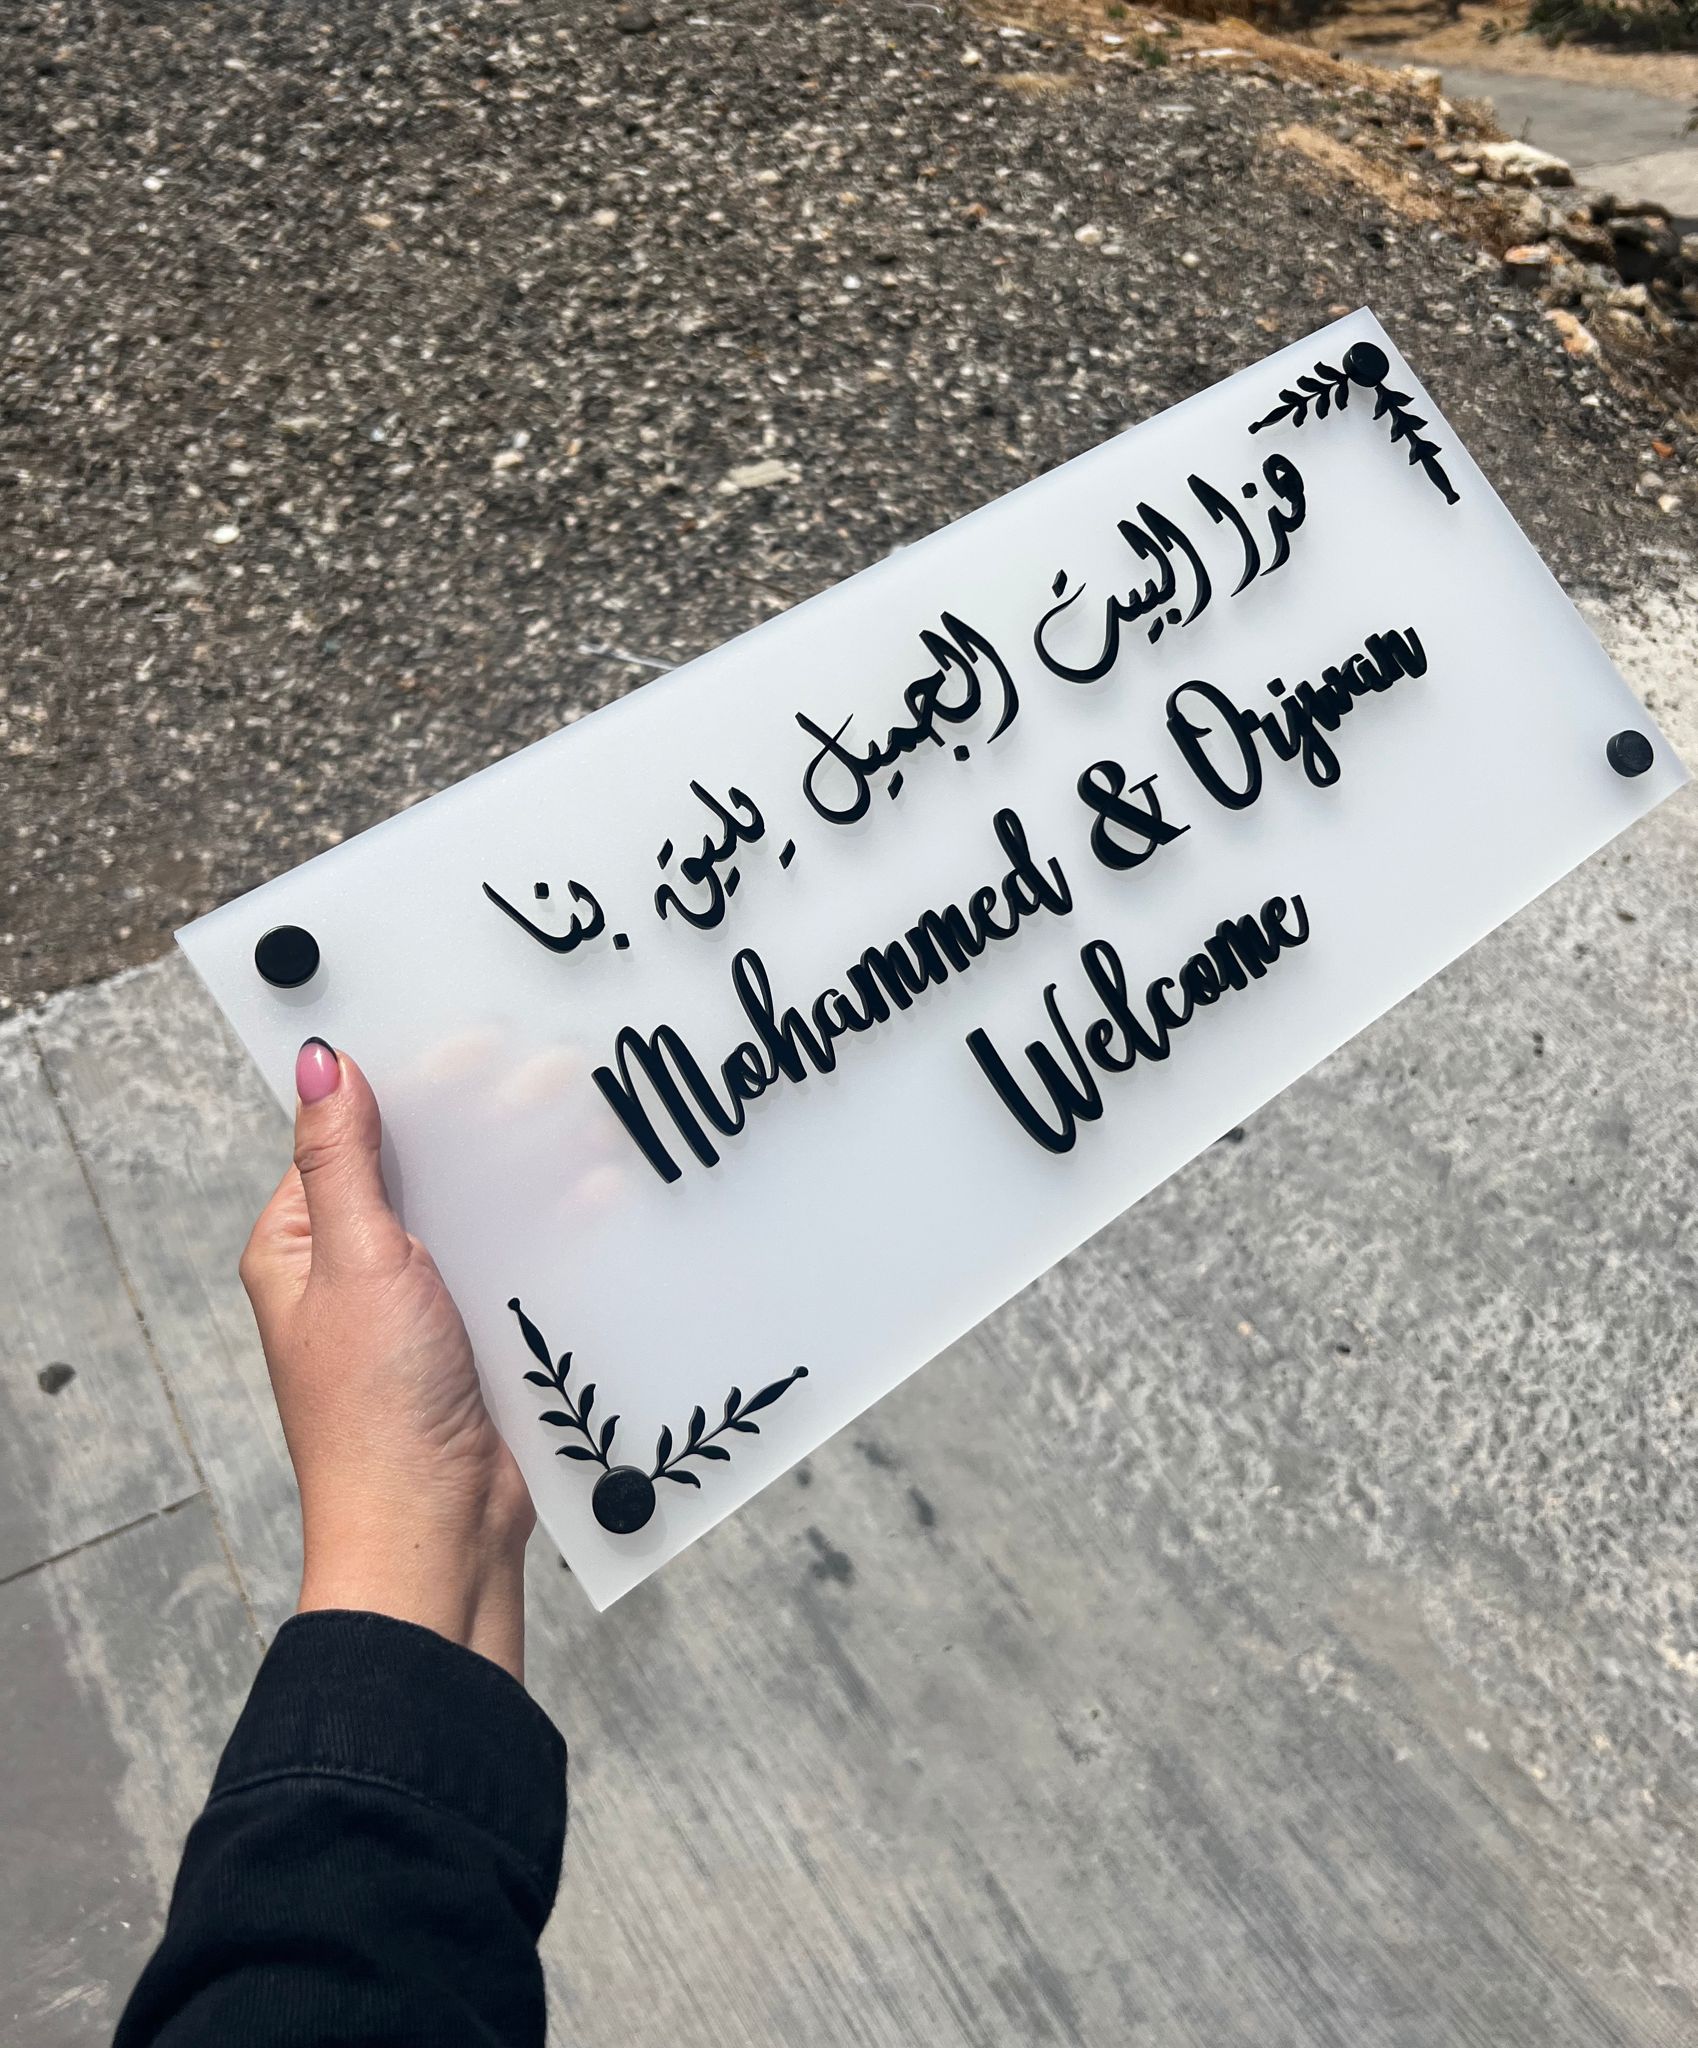 هذا البيت الجميل يِليق بنا
Mohammed & Orjwan
Welcome